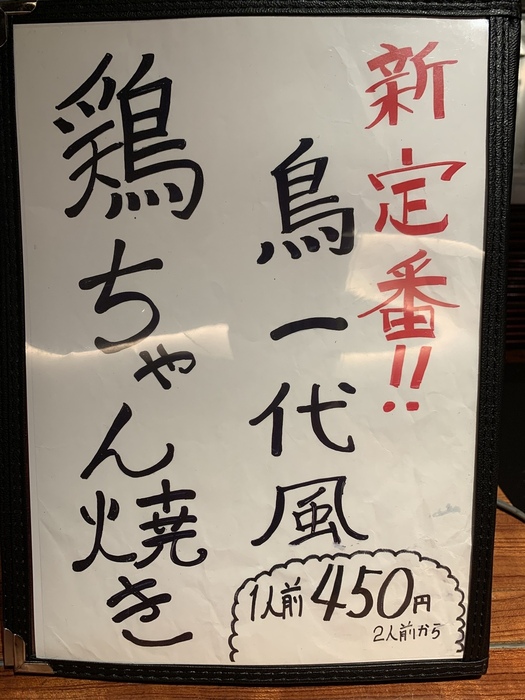 新定番!!
鳥一代風
鶏ちゃん焼き
1人前450円
2人前から